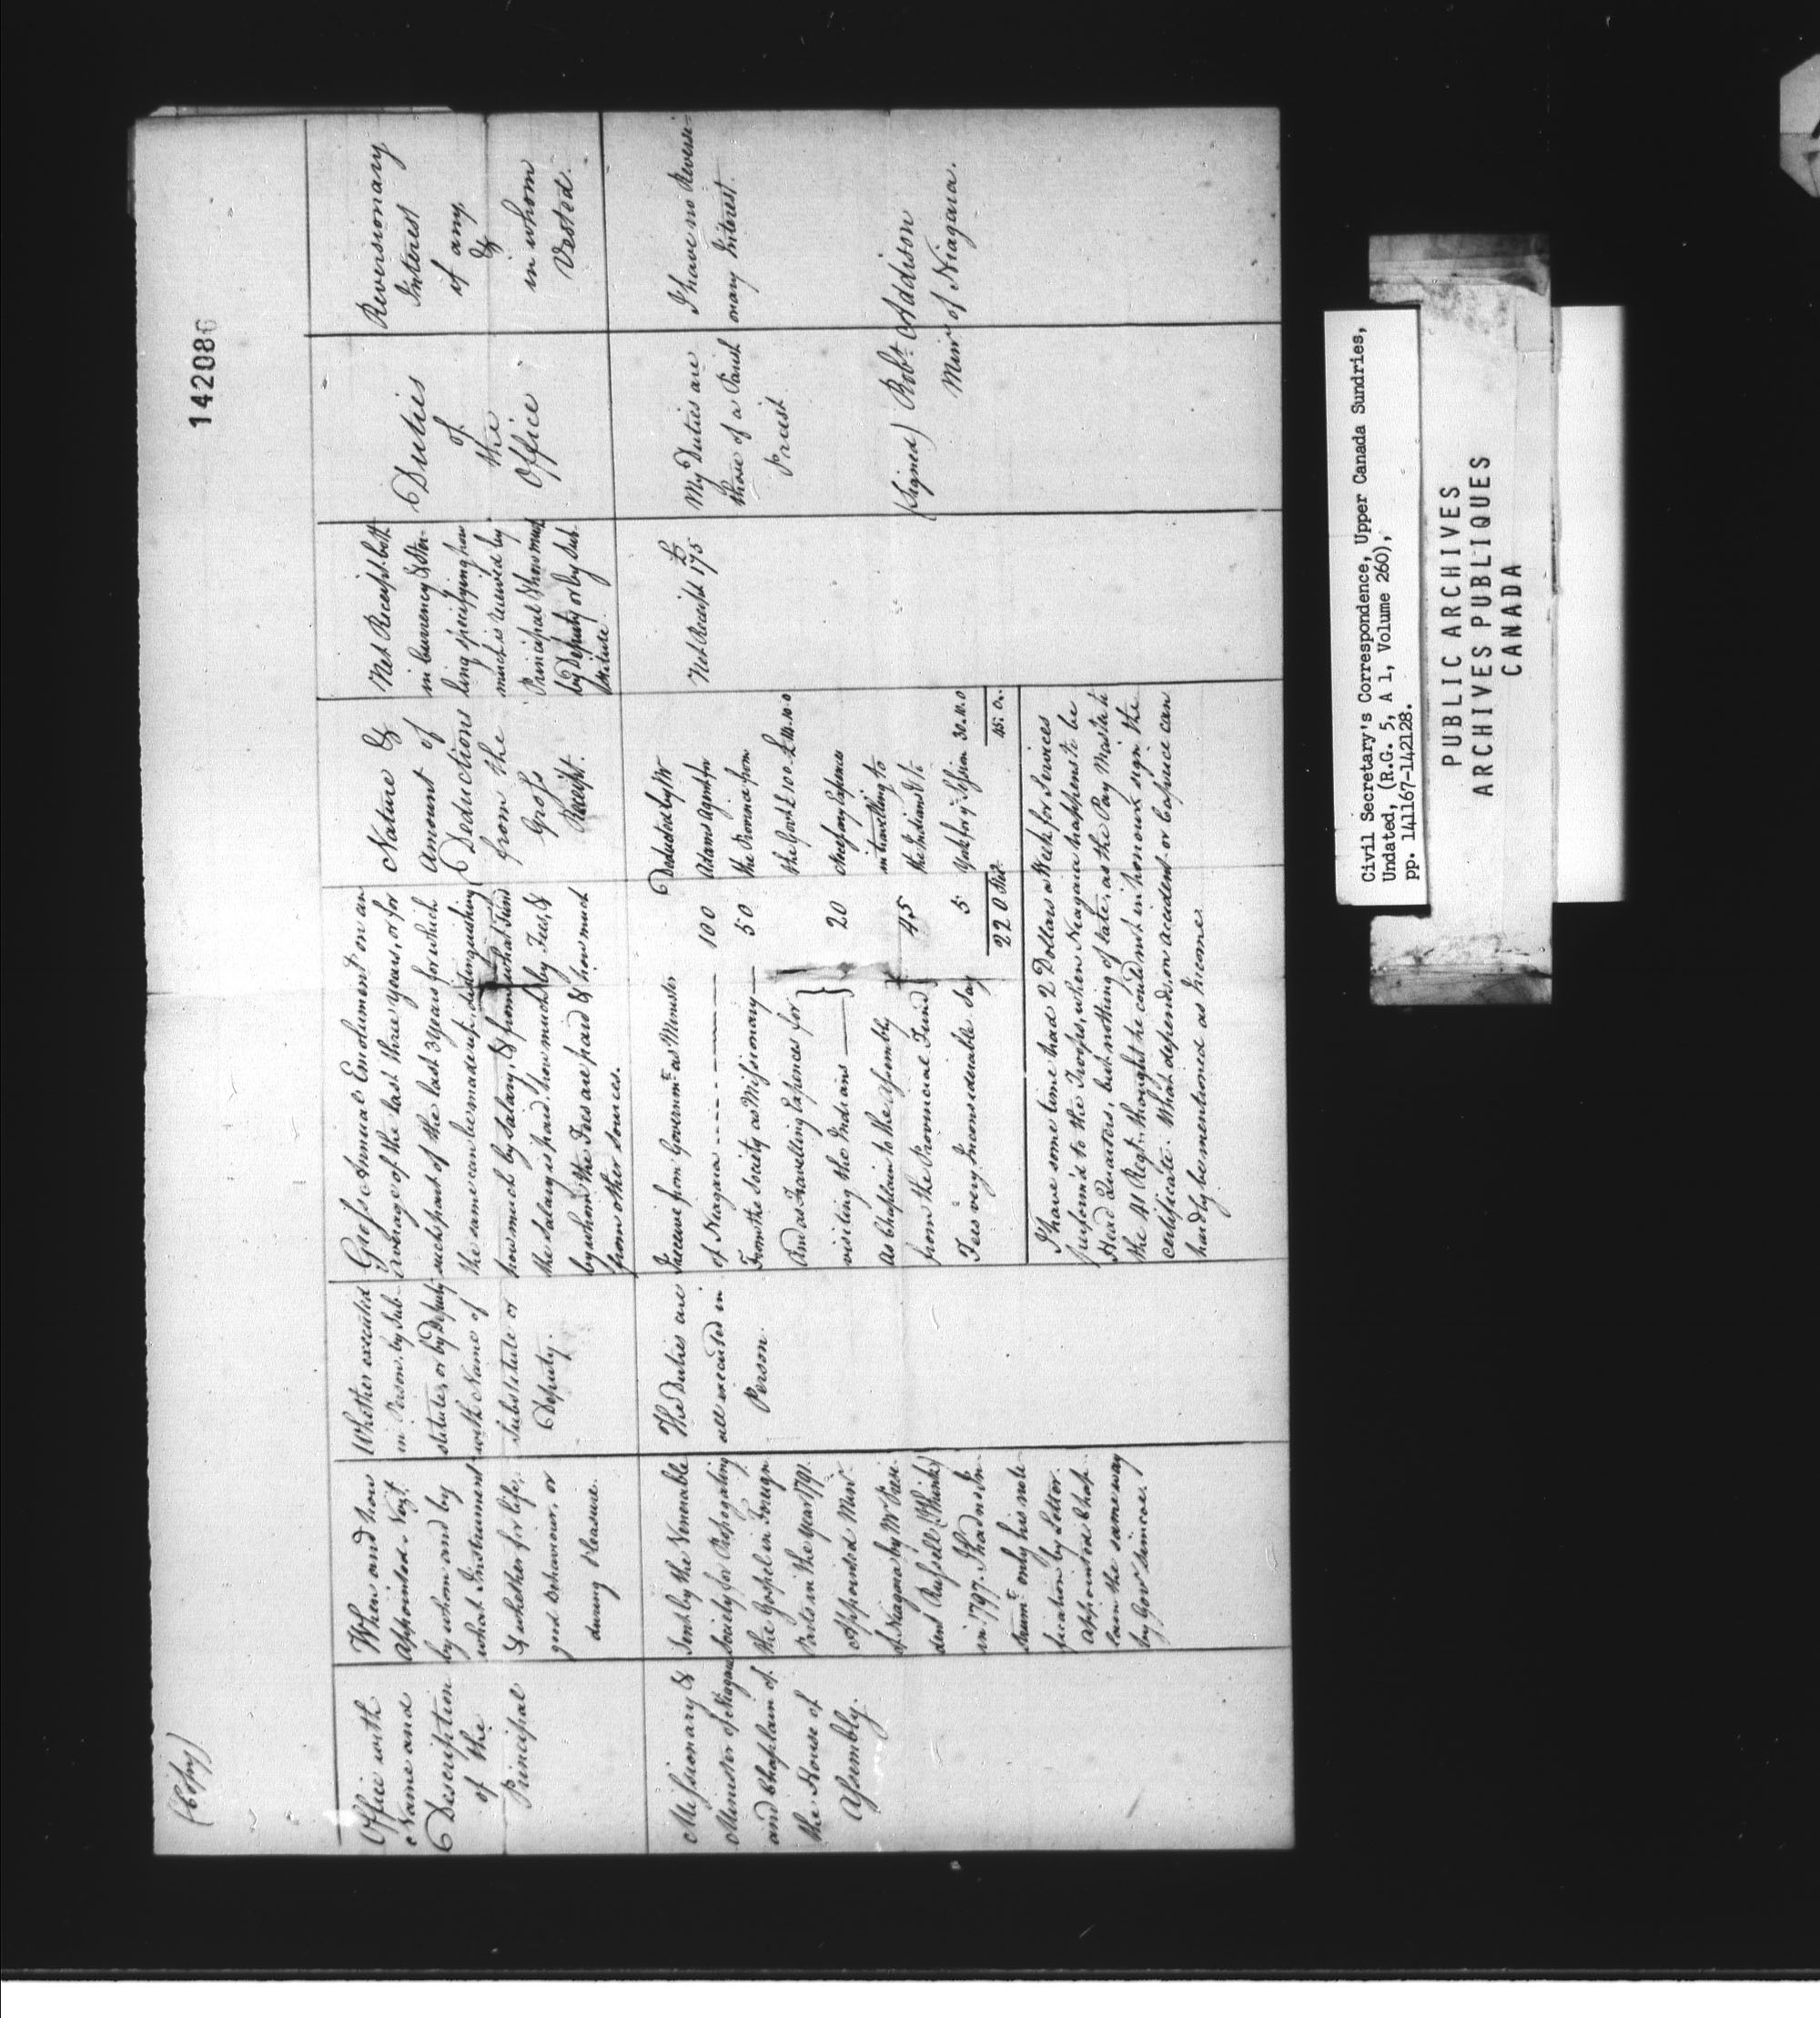 (Copy)
142086
Office with
Name and
Description
of the
Principal
When and how
Appointed. Vizt.
by whom and by
what Instrument
& whether for life,
good Behaviour, or
during Pleasure.
Whether executed
in Person, by Sub-
stitute, or by Deputy
with Name of
Substitute or
Deputy.
Gross Annual Emolument on an
average of the last three years, or for
such part of the last 3 years for which
the same can be made up, distinguishing
how much by Salary, & from what Fund
the Salary is paid, how much by Fees, &
by whom the Fees are paid & how much
from other sources.
Nature &
Amount of
Deductions
from the
Gross
Receipt.
Net Receipt both
in Currency & Ster-
ling specifying how
much is received by
Principal & how much
by Deputy or by Sub
stitute.
Duties
of
the
Office
Reversionary
Interest
if any,
&
in whom
Vested.
Missionary &
Minister of Niagara
and Chaplain of
the House of
Assembly.
Sent by the Venerable
Society for Propogating
the Gospel in Foreign
Parts in the year 1791.
Appointed Minr.
of Niagara by Mr Presi-
dent Russell (I think)
in 1797. I had no In-
strumt. only his note
fication by Letter.
Appointed Chap-
lain the same way
by Govr Simcoe.
The Duties are
all executed in
Person.
I receive from Governmt. as Minister
of Niagara 100
From the Society as Missionary 50
And as Travelling Expences for
visiting the Indians } 20
As Chaplain to the Assembly
from the Provincial Fund } 45
Fees very Inconsiderable Say 5
220
I have some time had 2 Dollars a Week for Services
perform'd to the Troops, when Niagara happens to be
Head Quarters, but nothing of late, as the Pay Master to
the 41 Regt. thought he could not in honour sign the
certificate. What depends on accident or caprice can
hardly be mentioned as Income.
Deducted by Mr
Adams Agent for
the Province from
the Govt £100
Necessary Expences
in travelling to
the Indians & to
York for ye Session 30.10.0
45.0.
Net Receipt £175
My Duties are
those of a Parish
Priest
I have no Reversi-
onary Interest.
(Signed) Robt. Addison
Minr of Niagara.
Civil Secretary's Correspondence, Upper Canada Sundries,
Undated, (R.G. 5, A 1, Volume 260),
pp. 141167-142128.
PUBLIC ARCHIVES
ARCHIVES PUBLIQUES
CANADA